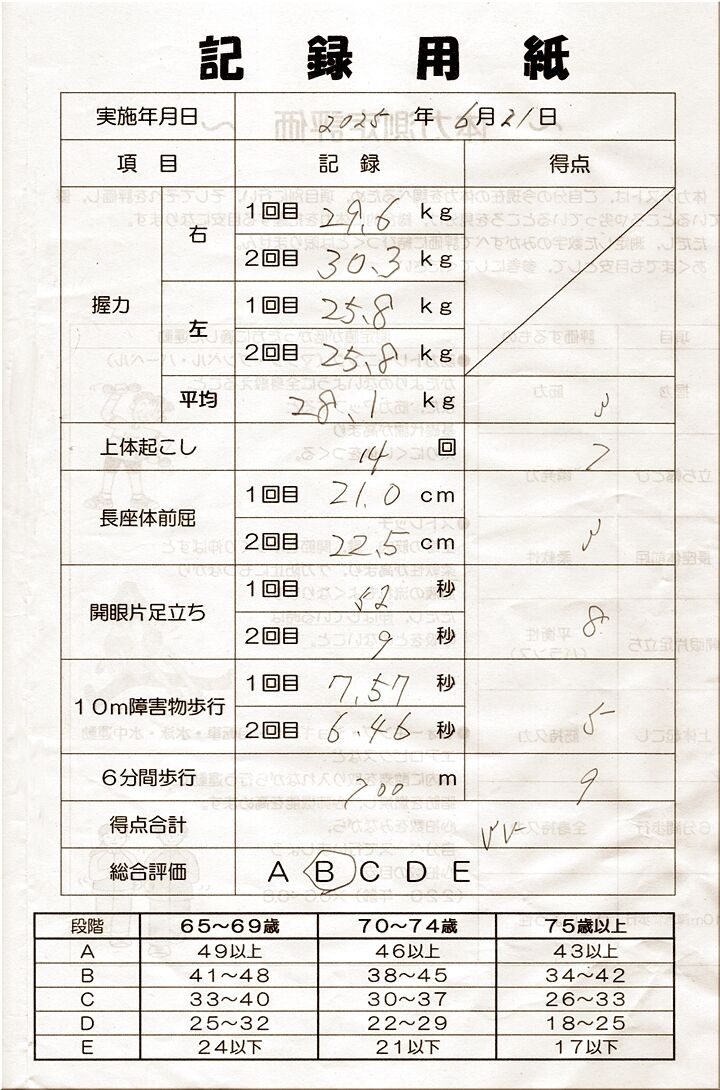 記録用紙
実施年月日 2025年6月21日
項目 記録 得点
握力 右 1回目 29.6 kg
2回目 30.3 kg
左 1回目 25.8 kg
2回目 25.8 kg
平均 28.1 kg 3
上体起こし 14 回 7
長座体前屈 1回目 21.0 cm 3
2回目 22.5 cm
開眼片足立ち 1回目 52 秒 8
2回目 9 秒
10m障害物歩行 1回目 7.57 秒 5
2回目 6.46 秒
6分間歩行 700 m 9
得点合計 35
総合評価 A B C D E
段階 65～69歳 70～74歳 75歳以上
A 49以上 46以上 43以上
B 41～48 38～45 34～42
C 33～40 30～37 26～33
D 25～32 22～29 18～25
E 24以下 21以下 17以下